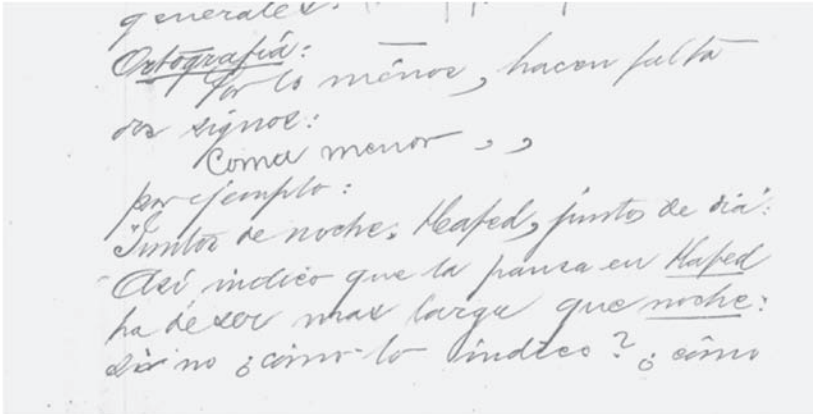 generales.
Ortografía:
Por lo menos, hacen falta
dos signos:
Coma menor , ,
por ejemplo:
"Juntos de noche, Hafed, juntos de día:
Así indico que la pausa en Hafed
ha de ser mas larga que noche:
si no ¿cómo lo indico? ¿cómo